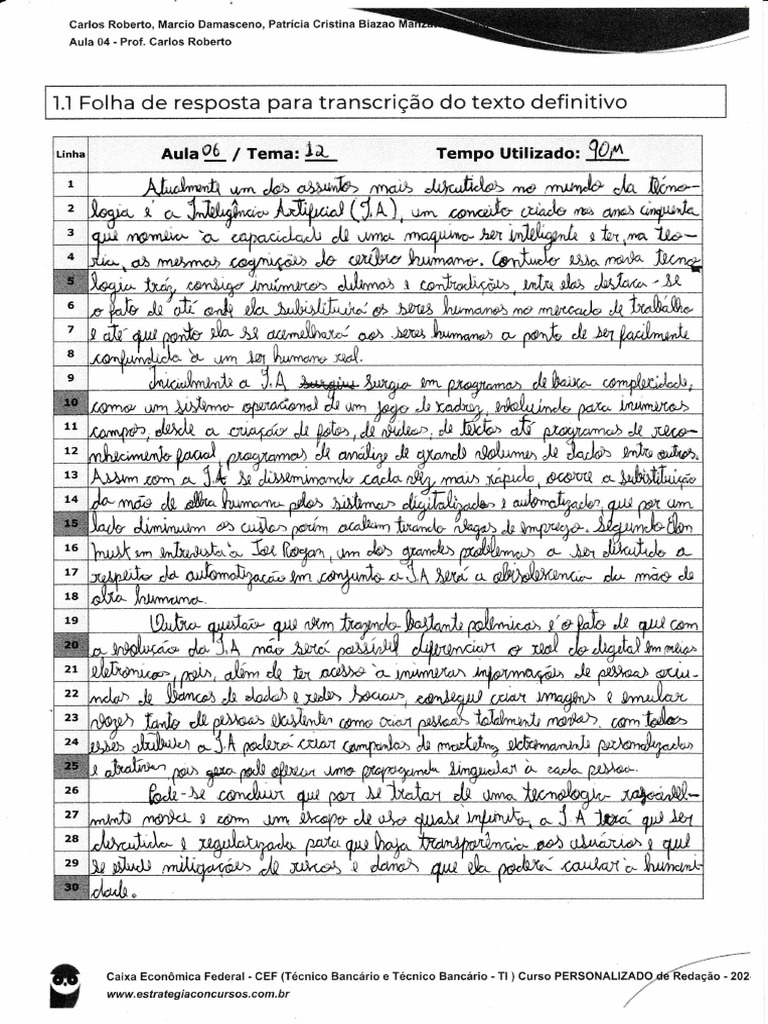 Carlos Roberto, Marcio Damasceno, Patrícia Cristina Biazao
Aula 04 - Prof. Carlos Roberto
1.1 Folha de resposta para transcrição do texto definitivo
Linha Aula 06 / Tema: 12 Tempo Utilizado: 90M
1 Atualmente um dos assuntos mais discutidos no mundo da tecno-
2 logia é a Inteligência Artificial (I.A), um conceito criado nos anos cinquenta
3 que nomeia à capacidade de uma maquina ser inteligente e ter, na teo-
4 ria, as mesmas cognições do cérebro humano. Contudo essa nova tecno
5 logia tráz consigo inúmeros dilemas e contradições, entre elas destaca-se
6 o fato de até onde ela subistituirá os seres humanos no mercado de trabalho
7 e até que ponto ela se acemelhará aos seres humanos a ponto de ser facilmente
8 confundida à um ser humano real.
9 Inicialmente a I.A surgiu surgio em programas de baixa complecidade,
10 como um sistema operacional de um jogo de xadrez, evoluindo para inumeros
11 campos, desde a criação de fotos, de videos, de textos até programas de reco-
12 nhecimento facial programas de análize de grande volumes de dados entre outros.
13 Assim com a I.A se disseminando cada vez mais rápido, ocorre a subistituição
14 da mão de obra humana pelos sistemas digitalizados e automatizados, que por um
15 lado diminuem os custos porém acabam tirando vagas de emprego. Segundo Elon
16 Must em entrevista à Joe Rogan, um dos grandes problemas a ser discutido a
17 respeito da automatização em conjunto a I.A será a obisolescencia da mão de
18 obra humana.
19 Outra questão que vem trazendo bastante polemicas é o fato de que com
20 a evolução da I.A não será possivél diferenciar o real do digital em meios
21 eletronicos, pois, além de ter acesso à inúmeras informações de pessoas oriu-
22 ndas de bancos de dados e redes sociais, consegue criar imagens e emular
23 vozes tanto de pessoas existentes como criar pessoas totalmente novas. com todos
24 esses atributos a I.A poderá criar campanhas de marketing extremamente personalizadas
25 e atrativas, pois pode oferecer uma propaganda singular à cada pessoa.
26 Pode-se concluir que por se tratar de uma tecnologia razoavel-
27 mente nova e com um escopo de uso quase infinito, a I.A terá que ser
28 discutida e regulatizada para que haja transparência aos usuários e que
29 se estude mitigações de riscos e danos que ela poderá causar à humani-
30 dade.
Caixa Econômica Federal - CEF (Técnico Bancário e Técnico Bancário - TI ) Curso PERSONALIZADO de Redação - 202
www.estrategiaconcursos.com.br